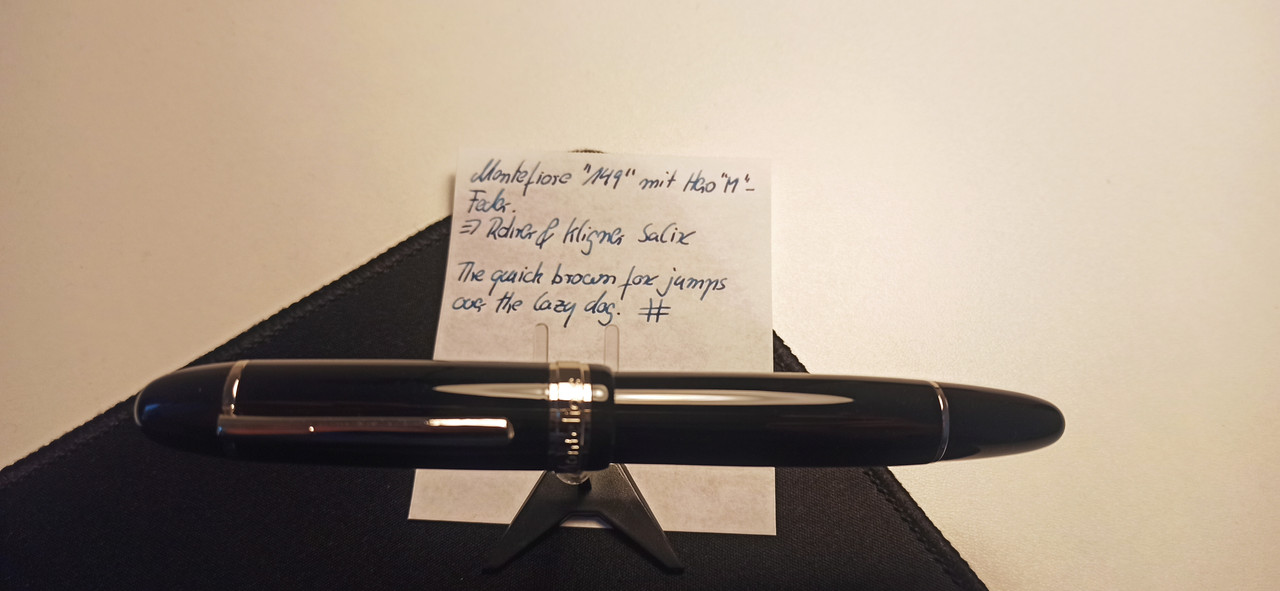 Montefiore "149" mit Hero "M"-
Feder.
=> Rohrer & Klinger Salix
The quick brown fox jumps
over the lazy dog. #